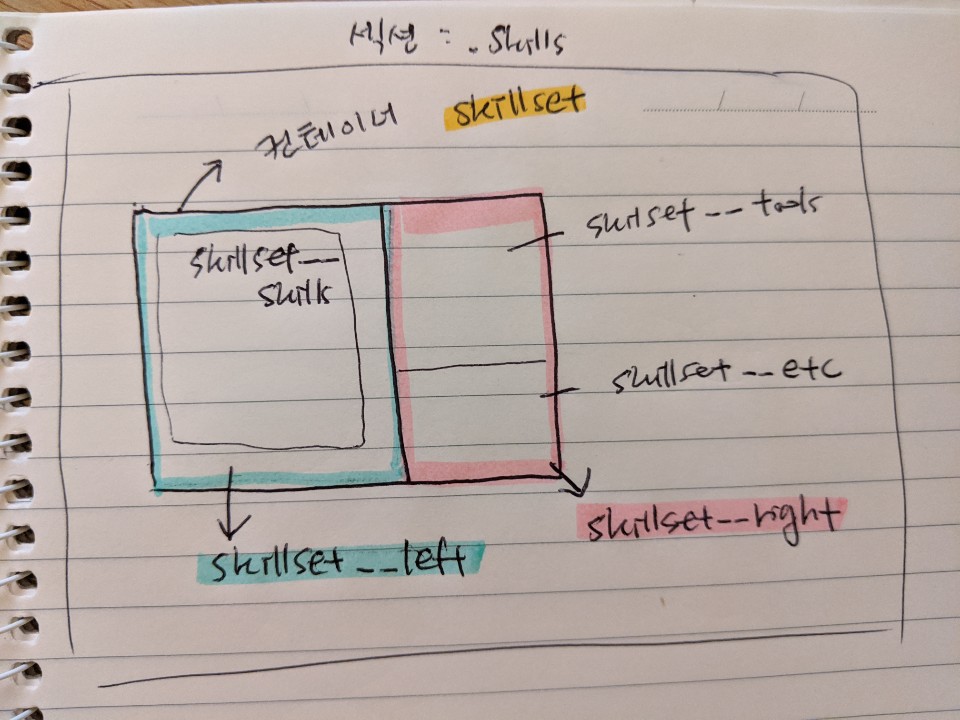 섹션 : .skills
컨테이너
skillset
skillset__tools
skillset__
skills
skillset__etc
skillset__right
skillset__left